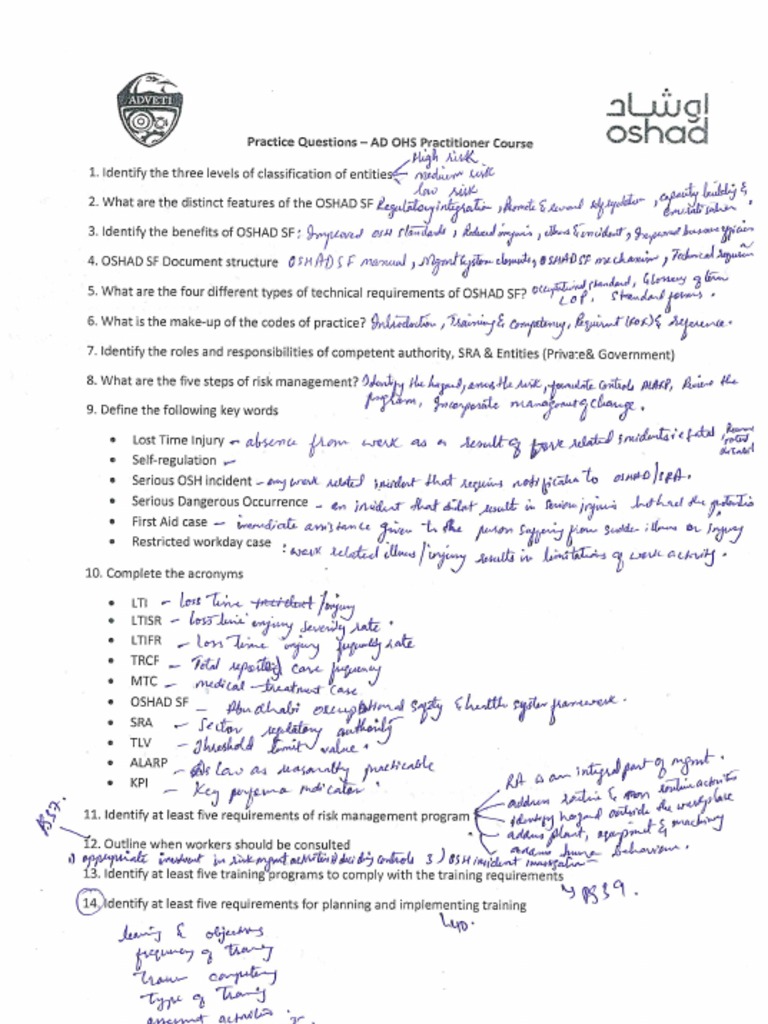 ADVETI
اوشاد
oshad
Practice Questions – AD OHS Practitioner Course
High risk
1. Identify the three levels of classification of entities medium risk
low risk
2. What are the distinct features of the OSHAD SF Regulatory integration, Promote & reward self regulation, capacity building &
3. Identify the benefits of OSHAD SF: Improved OSH standards, Reduced injuries, illness & incident, Improved business
4. OSHAD SF Document structure OSHAD SF manual, Mgmt system elements, OSHAD SF mechanism, Technical
5. What are the four different types of technical requirements of OSHAD SF? Occupational standard, Glossary of term
COP, Standard forms.
6. What is the make-up of the codes of practice? Introduction, Training & competency, Requirement & reference.
7. Identify the roles and responsibilities of competent authority, SRA & Entities (Private& Government)
8. What are the five steps of risk management? Identify the hazard, assess the risk, formulate controls ALARP, Review the
program, Incorporate management of change.
9. Define the following key words
• Lost Time Injury – absence from work as a result of work related incidents i.e fatal,
• Self-regulation –
• Serious OSH incident – any work related incident that requires notification to OSHAD/SRA.
• Serious Dangerous Occurrence – an incident that did not result in serious injuries but had the potential
• First Aid case – immediate assistance given to the person suffering from sudden illness or injury
• Restricted workday case : work related illness/injury results in limitations of work activity.
10. Complete the acronyms
• LTI – Loss Time incident/injury
• LTISR – loss time injury severity rate.
• LTIFR – Loss time injury frequency rate
• TRCF – Total reported case frequency
• MTC – medical treatment case
• OSHAD SF – Abu dhabi occupational safety & health system framework.
• SRA – Sector regulatory authority
• TLV – Threshold limit value.
• ALARP – As low as reasonably practicable
• KPI – Key performa indicator
RA is an integral part of mgmt.
address routine & non routine activities
11. Identify at least five requirements of risk management program identify hazard outside the workplace
address plant, equipment & machinery
address human behaviour.
PG37.
12. Outline when workers should be consulted
1) appropriate involvement in risk mgmt activities 2) deciding controls 3) OSH incident investigation
13. Identify at least five training programs to comply with the training requirements
PG39.
14. Identify at least five requirements for planning and implementing training
40.
learning & objectives
frequency of training
trainer competency
Type of training
assessment activities